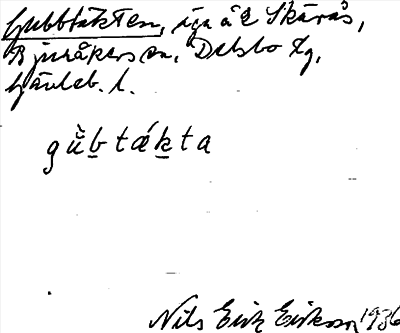 Gubbtäkten, äga å Skärås,
Bjuråkers sn, Delsbo tg,
Gävleb. l.
gu̇̀btǽkta
Nils Erik Eriksson 1936